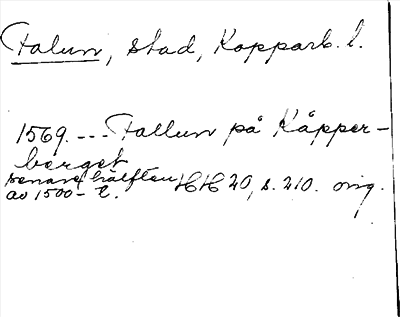 Falun, stad, Kopparb. l.
1569. --- Fallun på Kåpper-
berget
senare hälften HH 20, s. 210. orig.
av 1500-t.